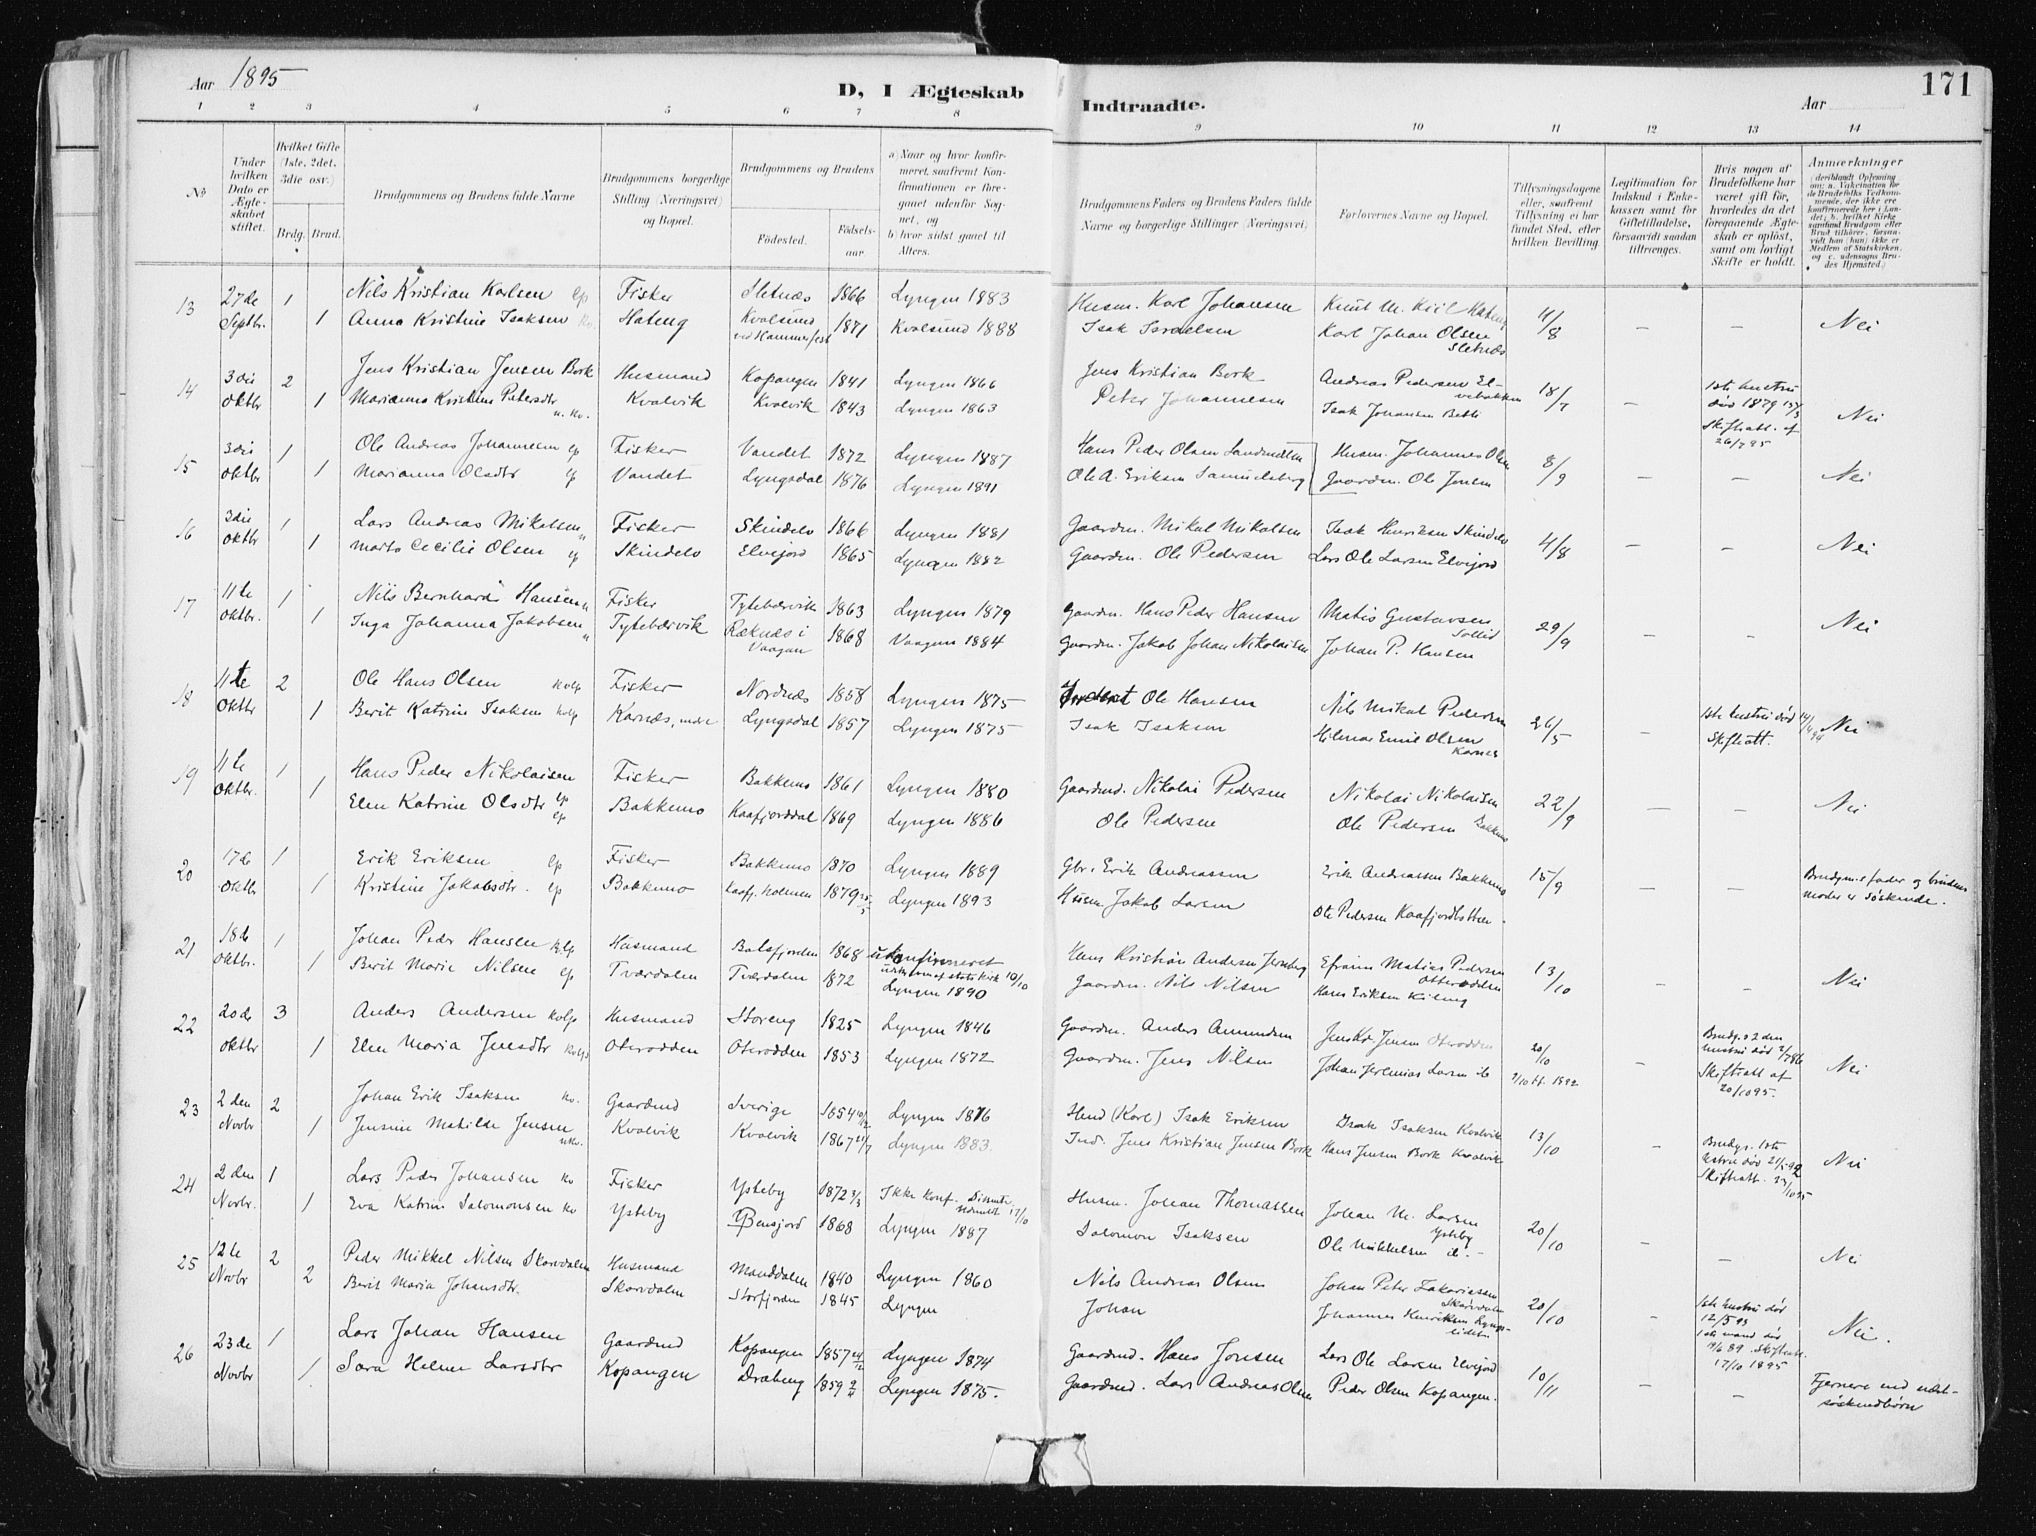 Aar 1895
D, I Ægteskab Indtraadte.
171
Aar
1 2 3 4 5 6 7 8 9 10 11 12 13 14
No
Under hvilken Dato er Ægteskabet stiftet.
Hvilket Gifte (1ste, 2det, 3die osv.)
Brdg. Brud.
Brudgommens og Brudens fulde Navne
Brudgommens borgerlige Stilling (Næringsvei) og Bopæl.
Brudgommens og Brudens
Fødested. Fødselsaar.
a) Naar og hvor konfirmeret, saafremt Konfirmationen er foregaaet udenfor Sognet, og
b) hvor sidst gaaet til Alters.
Brudgommens Faders og Brudens Faders fulde Navne og borgerlige Stillinger (Næringsvei)
Forlovernes Navne og Bopæl.
Tillysningsdagene eller, saafremt Tillysning ei har fundet Sted, efter hvilken Bevilling.
Legitimation for Indskud i Enkekassen samt for Giftetilladelse, forsaavidt saadan tiltrænges.
Hvis nogen af Brudefolkene har været gift før, hvorledes da det foregaaende Ægteskab er opløst, samt om lovligt Skifte er holdt.
Anmærkninger
13 27de 1 Nils Kristian Karlsen Fisker Sletnæs 1866 Lyngen 1883 Husm. Karl Johansen Knut M. Kiil Hateng 11/8 — — Nei
Septbr. 1 Anna Kristine Isaksen Hateng Kvalsund ved Hammerfest 1871 Kvalsund 1888 Isak Israelsen Karl Johan Olsen Sletnæs
14 3die 2 Jens Kristian Jensen Bork Husmand Kopangen 1841 Lyngen 1866 Jens Kristian Bork Andreas Pedersen Elvebakken 18/7 — 1ste hustru død 1879 Skifteatt. af 26/7 95 Nei
Oktbr 1 Marianna Kristine Petersdtr Kvalvik Kvalvik 1843 Lyngen 1863 Peter Johannesen Isak Johansen
15 3die 1 Ole Andreas Johannesen Fisker Vandet 1872 Lyngen 1887 Hans Peder Olsen Husm. Johannes Olsen 8/9 — — Nei
Oktbr 1 Marianna Olsdtr Vandet Lyngsdal 1876 Lyngen 1891 Ole A. Eriksen Samuelsberg Gaardm. Ole Jensen
16 3die 1 Lars Andreas Mikalsen Fisker Skindelv 1866 Lyngen 1881 Gaardm. Mikal Mikalsen Isak Henriksen Skindelv 4/8 — — Nei
Oktbr 1 Marta Cecilie Olsen Skindelv Elvejord 1865 Lyngen 1882 Gaardm. Ole Pedersen Lars Ole Larsen Elvejord
17 11te 1 Nils Bernhard Hansen Fisker Tytebærvik 1863 Lyngen 1879 Gaardm. Hans Peder Hansen Matis Gustavsen Sollid 29/9 — — Nei
Oktbr. 1 Inga Johanna Jakobsen Tytebærvik Ræknæs i Vaagan 1868 Vaagan 1884 Gaardm. Jakob Johan Nikolaisen Johan P. Hansen
18 11te 2 Ole Hans Olsen Fisker Nordnæs 1858 Lyngen 1875 Ole Hansen Nils Mikal Pedersen 26/5 — 1ste hustru død Skifteatt. Nei
Oktbr 1 Berit Katrine Isaksen Karnæs, indre Lyngsdal 1857 Lyngen 1875 Isak Isaksen Hilmar Emil Olsen Karnes
19 11te 1 Hans Peder Nikolaisen Fisker Bakkemo 1861 Lyngen 1880 Gaardmd. Nikolai Pedersen Nikolai Nikolaisen 22/9 — — Nei
Oktbr. 1 Elen Katrine Olsdtr Bakkemo Kaafjorddal 1869 Lyngen 1886 Ole Pedersen Ole Pedersen Bakkemo
20 17de 1 Erik Eriksen Fisker Bakkemo 1870 Lyngen 1889 Gbr. Erik Andreassen Erik Andreassen Bakkemo 15/9 — — Brudgm.s fader og brudens moder er søskende.
Oktbr 1 Kristine Jakobsdtr. Bakkemo Kaafj. Holmen 1879 Lyngen 1893 Husm. Jakob Larsen Ole Pedersen Kaafjordbotten.
21 18de 1 Johan Peder Hansen Husmand Balsfjorden 1868 ukonfirmeret udtr. af statskirk 10/10 Hans Kristian Andersen Efraim Matias Pedersen Otterodden 13/10 — — Nei
Oktbr. 1 Berit Marie Nilsen Tværdalen Tværdalen 1872 Lyngen 1890 Gaardm. Nils Nilsen Hans Eriksen Kileng
22 20de 3 Anders Andersen Husmand Storeng 1825 Lyngen 1846 Gaardm. Anders Amundsen Jens Kr. Jensen Oterodden 20/10 Brudg.s 2den hustru død 2/7 86 Skifteatt af 20/10 95. Nei
Oktbr 1 Elen Maria Jensdtr Oterodden Oterodden 1853 Lyngen 1872 Gaardm. Jens Nilsen Johan Jeremias Larsen ib
23 2den 2 Johan Erik Isaksen Gaardmd Sverige 1854 Lyngen 1876 (Karl) Isak Eriksen Isak Isaksen Kvalvik 13/10 — Brudgs. 1ste Skifteatt. Nei
Novbr 1 Jensine Matilde Jensen Kvalvik Kvalvik 1867 Lyngen 1883. Ind. Jens Kristian Jensen Bork Hans Jensen Bork Kvalvik
24 2den 1 Lars Peder Johansen Fisker Ysteby 1872 Ikke konf. Husm. Johan Thomassen Johan M. Larsen Ysteby 20/10 — — Nei
Novbr. 1 Eva Katrine Salomonsen Ysteby Bensjord 1868 Lyngen 1887 Salomon Isaksen Ole Mikkelsen ib.
25 12te 2 Peder Mikkel Nilsen Skarvdalen Husmand Manddalen 1840 Lyngen 1860 Nils Andreas Olsen Johan Peter Zakariassen Skarvdalen 20/10 — 1ste hustru død 12/5 93 1ste mand død Skifteatt. 17/10 1895 Nei.
Novbr 2 Berit Maria Johansdtr. Skarvdalen Storfjorden 1845 Lyngen Johan Johannes Henriksen Lyngseidet.
26 23de 1 Lars Johan Hansen Gaardmd Kopangen 1857 Lyngen 1874 Gaardmd. Hans Jensen Lars Ole Larsen Elvejord 10/11 — — Fjernere end næstsøskendbørn
Novbr 1 Sara Helene Larsdtr Kopangen Dræbeng 1859 Lyngen 1875. Gaardmd. Lars Andreas Olsen Peder Olsen Kopangen.